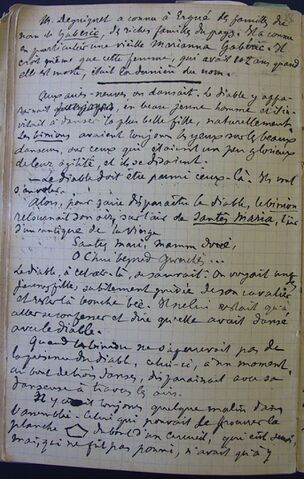 M. Déguignet a connu à Ergué des familles du
nom de Gabéric, de riches familles du pays. Il a connu
en particulier une vieille Marianna Gabéric. Il
croit même que cette femme, qui avait 102 ans quand
elle est morte, était la dernière du nom.
Aux aires-neuves on dansait. le diable y appa-
raissait en beau jeune homme et il in-
vitait à danser la plus belle fille, naturellement.
Les binious avaient toujours les yeux sur les beaux
danseurs, sur ceux qui étaient un peu glorieux
de leur agilité, et ils se disaient.
— Le diable doit être parmi ceux-là. Ils vont
s'envoler.
Alors, pour faire disparaître le diable, le biniou
retournait son air sur l'air de Santez Maria, l'air
d'un cantique de la Vierge
Santez Mari, mamm Doué,
O C'hui beyned
Le diable, à cet air-là, se sauvait. On voyait une
jeune fille, subitement privée de son cavalier
et rester la bouche bée. Il ne lui restait qu'à
aller se confesser et dire qu'elle avait dansé
avec le diable.
Quand le biniou ne s'apercevait pas de
la présence du diable, celui-ci, à un moment,
au bout de trois danses, disparaissait avec sa
danseuse à travers les airs.
Il y avait toujours quelque malin dans
l'assemblée. Celui qui pouvait se trouver la
planche du bout d'un cercueil, qui était
mais qui ne fût pas pourri, n'avait qu'à y